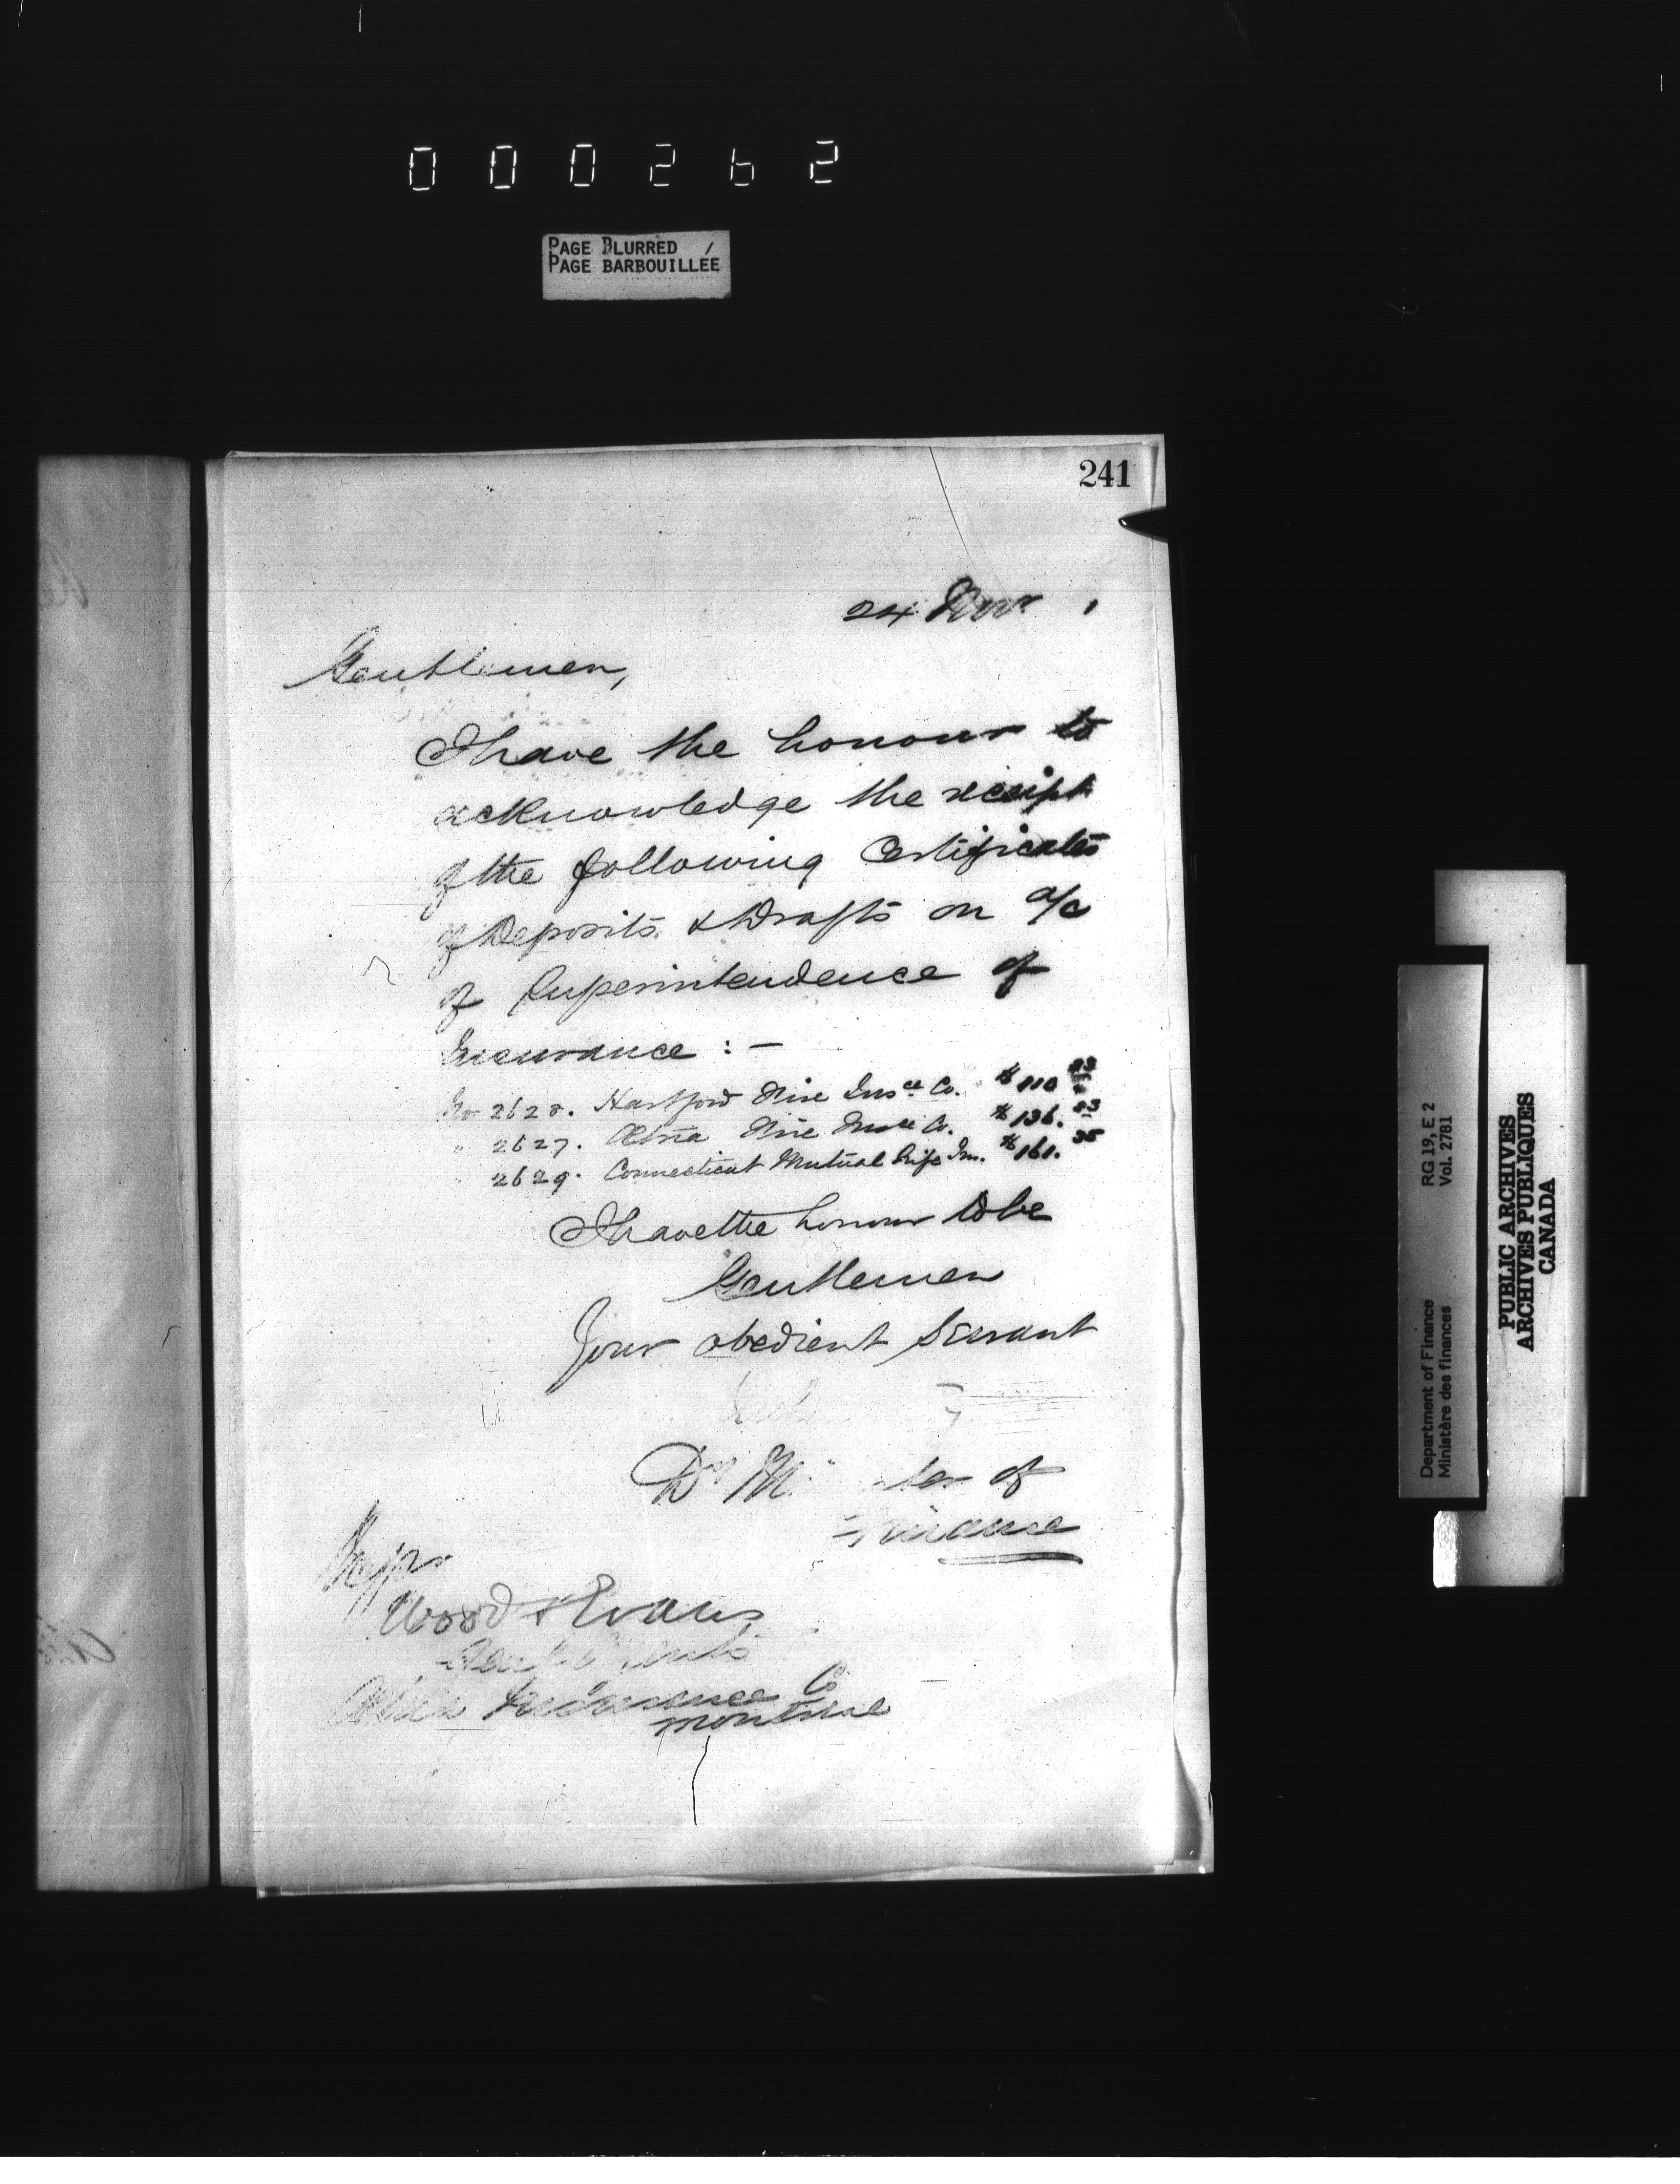 000262
PAGE BLURRED
PAGE BARBOUILLÉE
241
24 Novr
Gentlemen,
I have the honour to
acknowledge the receipt
of the following Certificates
of Deposits & Drafts on a/c
of Superintendence of
Insurance : —
No 2628. Hartford Fire Insce Co. $110
" 2627. Ætna Fire Insce Co. $136. 83
" 2629. Connecticut Mutual Life In. $161. 35
I have the honour to be
Gentlemen
Your obedient Servant
Dy M ter of
Finance
Messrs
Wood & Evans
Insurance Co
Montreal
Department of Finance
Ministère des finances
RG 19, E 2
Vol. 2781
PUBLIC ARCHIVES
ARCHIVES PUBLIQUES
CANADA